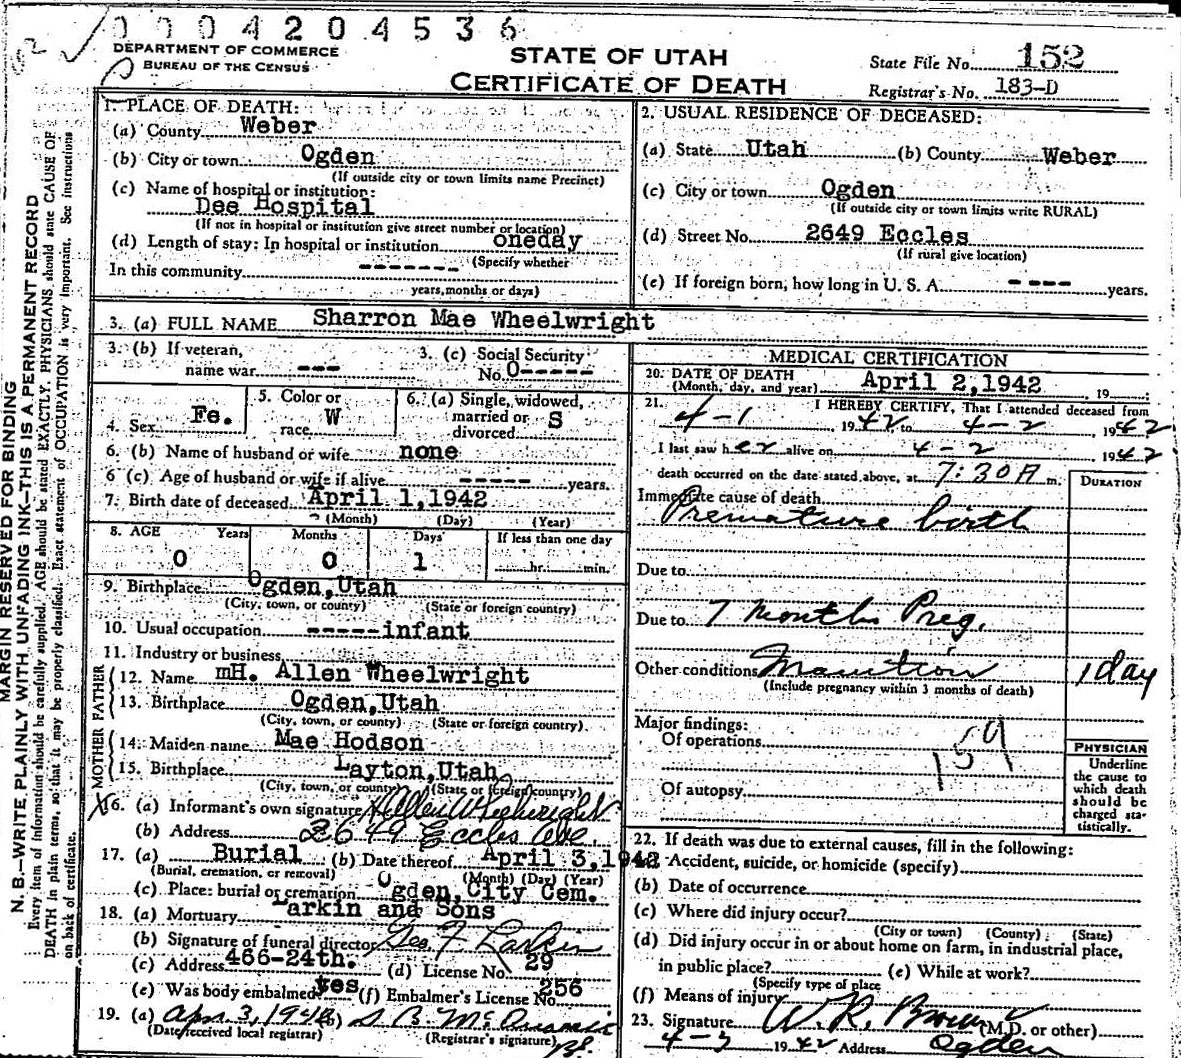 0004204536
DEPARTMENT OF COMMERCE
BUREAU OF THE CENSUS
STATE OF UTAH
CERTIFICATE OF DEATH
State File No. 152
Registrar's No. 183-D
MARGIN RESERVED FOR BINDING
N. B.—WRITE PLAINLY WITH UNFADING INK—THIS IS A PERMANENT RECORD
Every item of information should be carefully supplied. AGE should be stated EXACTLY. PHYSICIANS should state CAUSE OF
DEATH in plain terms, so that it may be properly classified. Exact statement of OCCUPATION is very important. See instructions
on back of certificate.
1. PLACE OF DEATH:
(a) County Weber
(b) City or town Ogden
(If outside city or town limits name Precinct)
(c) Name of hospital or institution:
Dee Hospital
(If not in hospital or institution give street number or location)
(d) Length of stay: In hospital or institution oneday
(Specify whether
In this community -------
years, months or days)
2. USUAL RESIDENCE OF DECEASED:
(a) State Utah (b) County Weber
(c) City or town Ogden
(If outside city or town limits write RURAL)
(d) Street No. 2649 Eccles
(If rural give location)
(e) If foreign born, how long in U. S. A. ---- years.
3. (a) FULL NAME Sharron Mae Wheelwright
3. (b) If veteran,
name war --- 
3. (c) Social Security
No. 0-----
4. Sex Fe.
5. Color or
race W
6. (a) Single, widowed,
married or
divorced S
6. (b) Name of husband or wife none
6 (c) Age of husband or wife if alive ----- years.
7. Birth date of deceased April 1,1942
(Month) (Day) (Year)
8. AGE Years Months Days If less than one day
0 0 1 hr. min.
9. Birthplace Ogden,Utah
(City, town, or county) (State or foreign country)
10. Usual occupation -----infant
11. Industry or business
FATHER
12. Name mH. Allen Wheelwright
13. Birthplace Ogden,Utah
(City, town, or county) (State or foreign country)
MOTHER
14. Maiden name Mae Hodson
15. Birthplace Layton,Utah
(City, town, or county) (State or foreign country)
X16. (a) Informant's own signature X Allen Wheelwright
(b) Address 2649 Eccles Ave.
17. (a) Burial (b) Date thereof April 3,1942
(Burial, cremation, or removal) (Month) (Day) (Year)
(c) Place: burial or cremation Ogden,City Cem.
18. (a) Mortuary Larkin and Sons
(b) Signature of funeral director Geo. F Larkin
(c) Address 466-24th. (d) License No. 29
(e) Was body embalmed? yes (f) Embalmer's License No. 256
19. (a) Apr. 3, 1942 (b)
(Date received local registrar) (Registrar's signature)
MEDICAL CERTIFICATION
20. DATE OF DEATH
(Month, day, and year) April 2,1942, 19
21. I HEREBY CERTIFY, That I attended deceased from
4-1 1942, to 4-2, 1942
I last saw her alive on 4-2 1942
death occurred on the date stated above, at 7:30 A m.
DURATION
Immediate cause of death
Premature birth
Due to
Due to 7 months Preg.
Other conditions Inanition 1 day
(Include pregnancy within 3 months of death)
Major findings:
Of operations
159
Of autopsy
PHYSICIAN
Underline
the cause to
which death
should be
charged sta-
tistically.
22. If death was due to external causes, fill in the following:
Accident, suicide, or homicide (specify)
(b) Date of occurrence
(c) Where did injury occur?
(City or town) (County) (State)
(d) Did injury occur in or about home on farm, in industrial place,
in public place? (e) While at work?
(Specify type of place
(f) Means of injury
23. Signature W. R. Brown (M.D. or other)
4-3 1942 Address Ogden